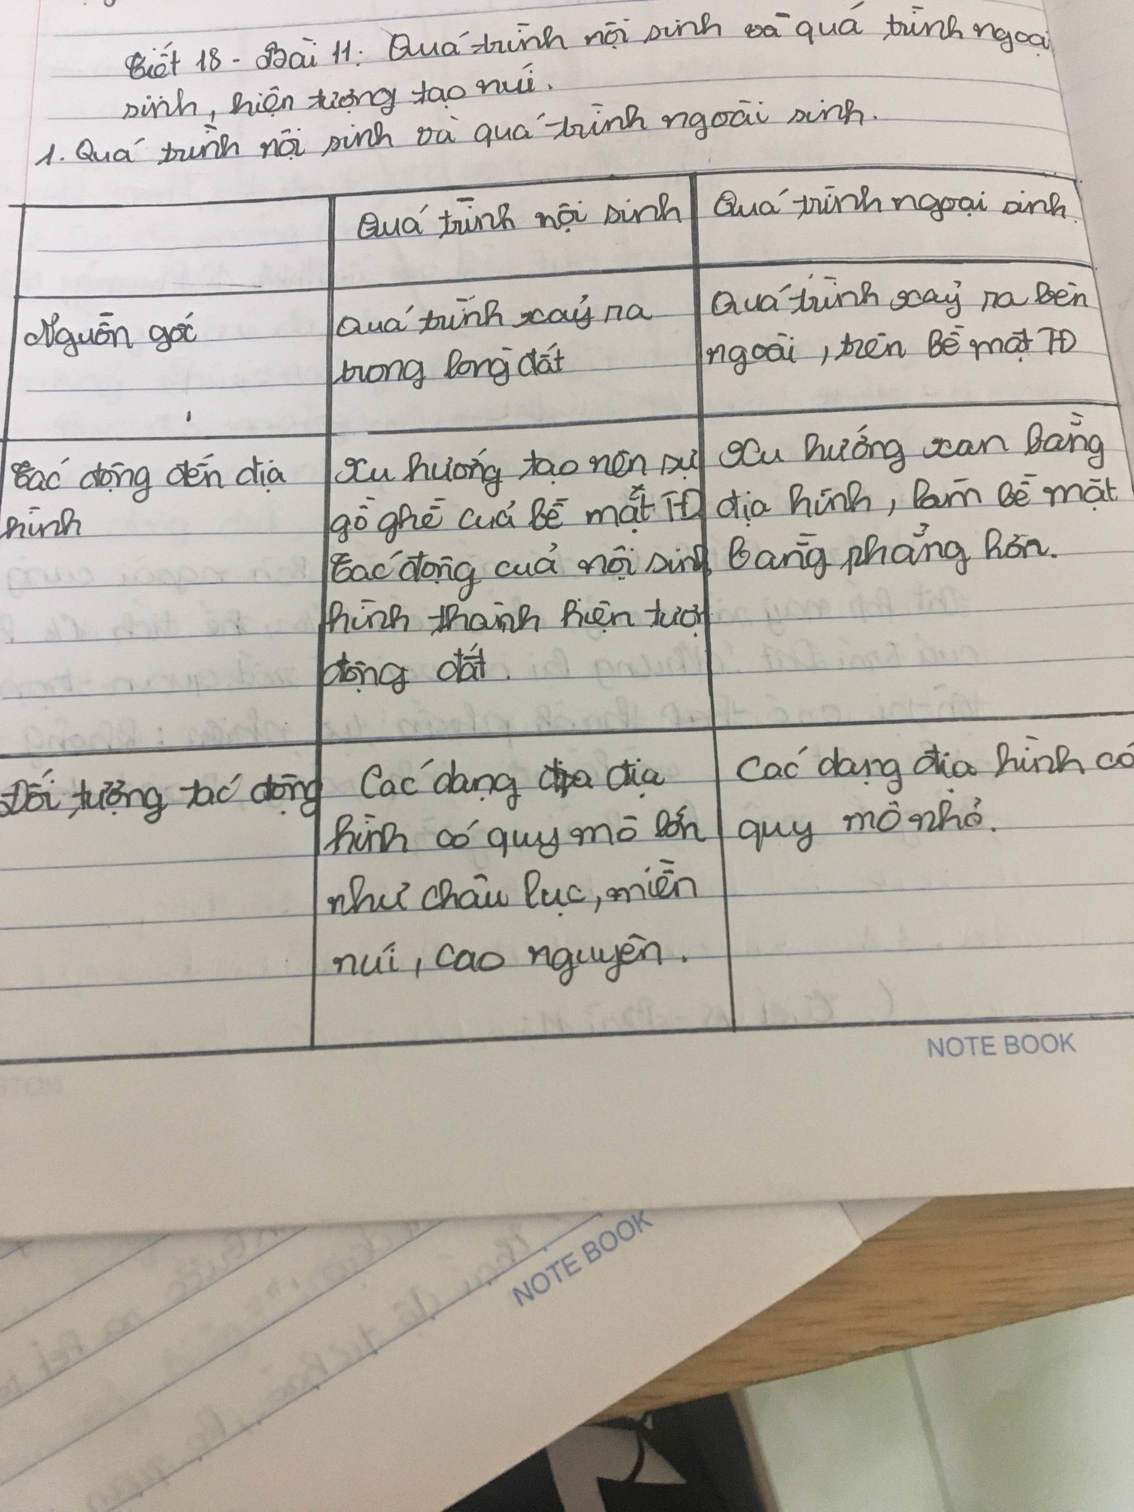 Tiết 18 - Bài 11: Quá trình nội sinh và quá trình ngoại
sinh, hiện tượng tạo núi.
1. Quá trình nội sinh và quá trình ngoại sinh.
Quá trình nội sinh
Quá trình ngoại sinh
Nguồn gốc
Quá trình xảy ra
trong lòng đất
Quá trình xảy ra bên
ngoài, trên bề mặt TĐ
Tác động đến địa
hình
Xu hướng tạo nên sự
gồ ghề của bề mặt TĐ
Tác động của nội sinh
hình thành hiện tượn
động đất.
Xu hướng san bằng
địa hình, làm bề mặt
bằng phẳng hơn.
Đối tượng tác động
Các dạng địa
hình có quy mô lớn
như châu lục, miền
núi, cao nguyên.
Các dạng địa hình có
quy mô nhỏ.
NOTE BOOK
NOTE BOOK